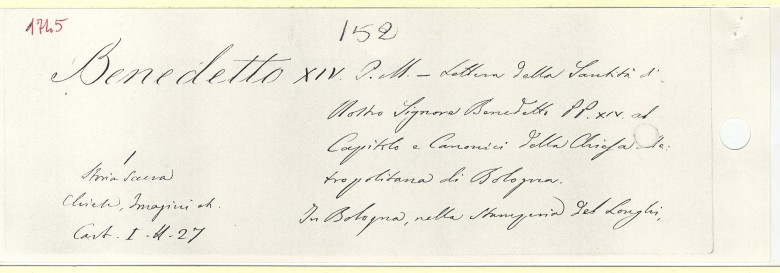 1745
152
Benedetto XIV. P. M. – Lettera della Santità di
Nostro Signore Benedetto PP. XIV. al
Capitolo e Canonici della Chiesa Me:
tropolitana di Bologna.
In Bologna, nella Stamperia del Longhi,
1
Storia Sacra
Chiese, Imagini etc.
Cart. I. H. 27